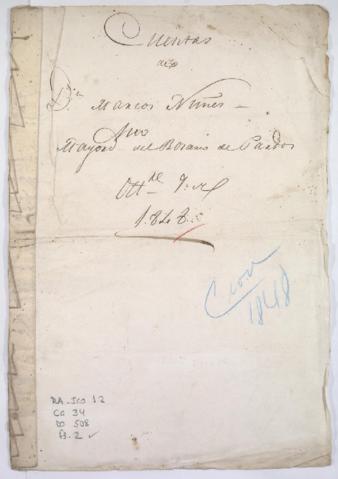 Cuentas
de
Dn Marcos Nuñes
Mayord del Rosario de Pardos
Otte
1848
1848
RA-ICO 12
Ca 34
DO 508
fs. 2